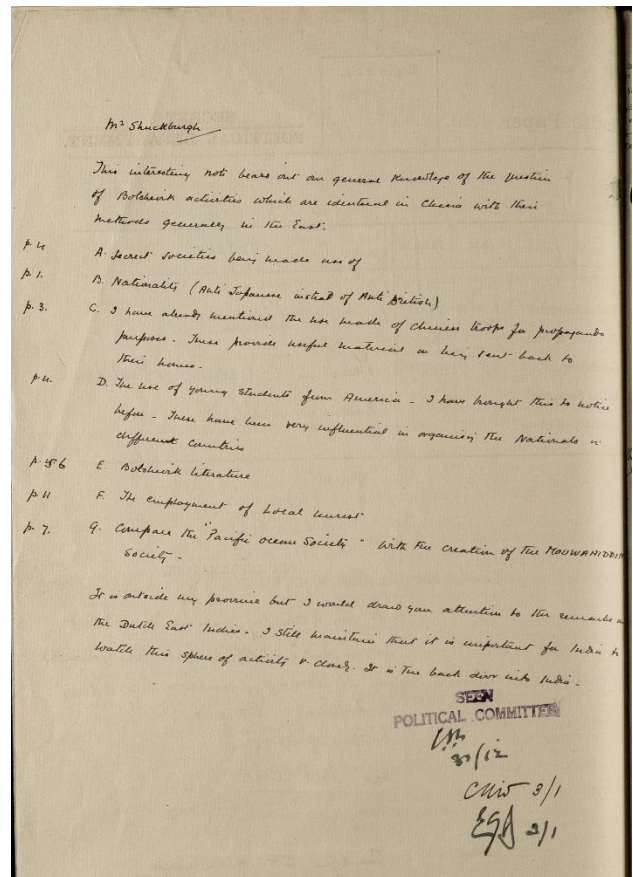 Mr Shuckburgh
This interesting note bears out our general knowledge of the question
of Bolshevik activities which are identical in China with their
methods generally in the East.
p. 4 A. Secret Societies being made use of
p. 1. B. Nationality (Anti Japanese instead of Anti British)
p. 3. C. I have already mentioned the use made of Chinese troops for propaganda
purposes - These provide useful material on being sent back to
their homes.
p. 4. D. The use of young students from America - I have brought this to notice
before - These have been very influential in organising the Nationals in
different countries
p. 5 6 E Bolshevik literature
p. 11 F. The employment of Local unrest
p. 7. G. Compare the "Pacific Ocean Society" with the creation of the MOUWAHIDDIN
Society -
It is outside my province but I would draw your attention to the remarks on
the Dutch East Indies - I still maintain that it is important for India to
watch this sphere of activity v. closely. It is the back door into India -
SEEN
POLITICAL COMMITTEE
31/12
3/1
3/1